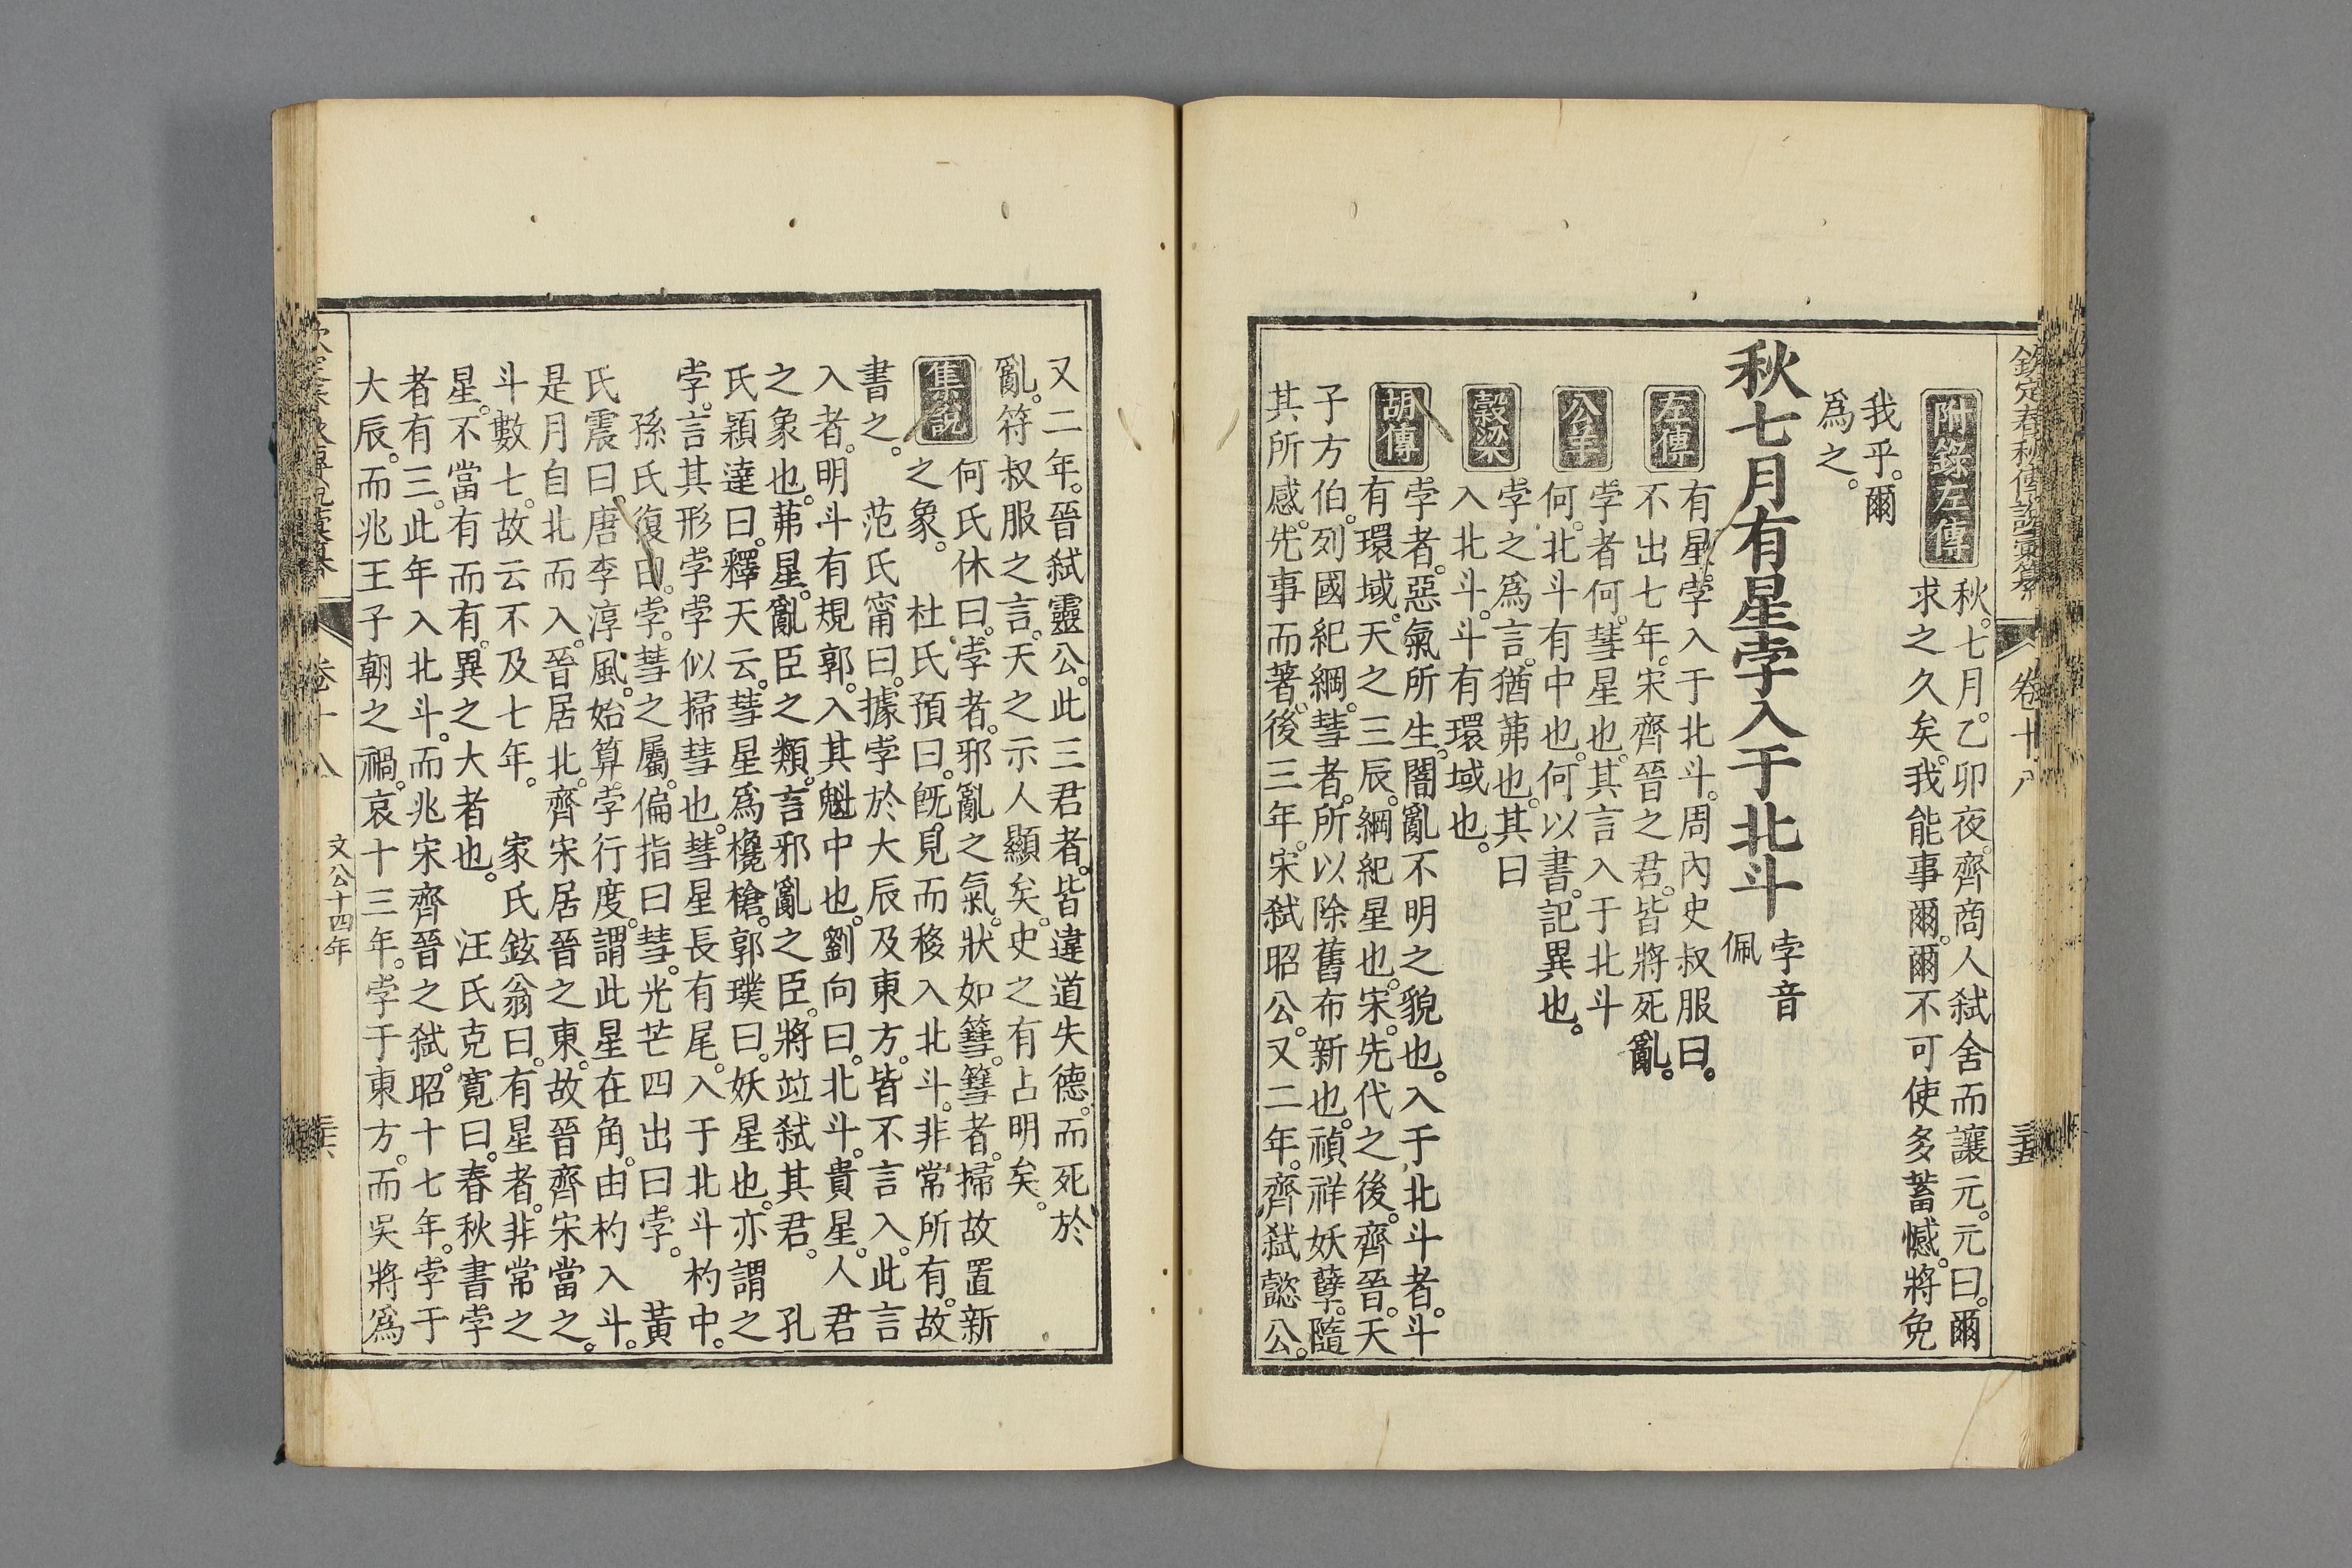 欽定春秋傳說彙纂 卷十八 三十五
附錄左傳 秋。七月。乙卯夜。齊商人弒舍而讓元。元曰。爾
求之久矣。我能事爾。爾不可使多蓄憾。將免
我乎。爾
爲之。
秋七月有星孛入于北斗 孛音
佩
左傳 有星孛入于北斗。周內史叔服曰。
不出七年。宋齊晉之君。皆將死亂。
公羊 孛者何。彗星也。其言入于北斗
何。北斗有中也。何以書。記異也。
穀梁 孛之爲言。猶茀也。其曰
入北斗。斗有環域也。
胡傳 孛者。惡氣所生。闇亂不明之貌也。入于北斗者。斗
有環域。天之三辰。綱紀星也。宋。先代之後。齊晉。天
子方伯。列國紀綱。彗者。所以除舊布新也。禎祥妖孽。隨
其所感。先事而著。後三年。宋弒昭公。又二年。齊弒懿公。
又二年。晉弒靈公。此三君者。皆違道失德。而死於
亂。符叔服之言。天之示人顯矣。史之有占明矣。
集說 何氏休曰。孛者。邪亂之氣。狀如篲。篲者。掃故置新
之象。 杜氏預曰。旣見而移入北斗。非常所有。故
書之。 范氏甯曰。據孛於大辰及東方。皆不言入。此言
入者。明斗有規郭。入其魁中也。劉向曰。北斗。貴星。人君
之象也。茀星。亂臣之類。言邪亂之臣。將竝弒其君。 孔
氏穎達曰。釋天云。彗星爲欃槍。郭璞曰。妖星也。亦謂之
孛。言其形孛孛似掃彗也。彗星長有尾。入于北斗杓中。
孫氏復曰。孛。彗之屬。偏指曰彗。光芒四出曰孛。 黃
氏震曰。唐李淳風。始算孛行度。謂此星在角。由杓入斗。
是月自北而入。晉居北。齊宋居晉之東。故晉齊宋當之。
斗數七。故云不及七年。 家氏鉉翁曰。有星者。非常之
星。不當有而有。異之大者也。 汪氏克寬曰。春秋書孛
者有三。此年入北斗。而兆宋齊晉之弒。昭十七年。孛于
大辰。而兆王子朝之禍。哀十三年。孛于東方。而吳將爲
卷十八 文公十四年 三十六